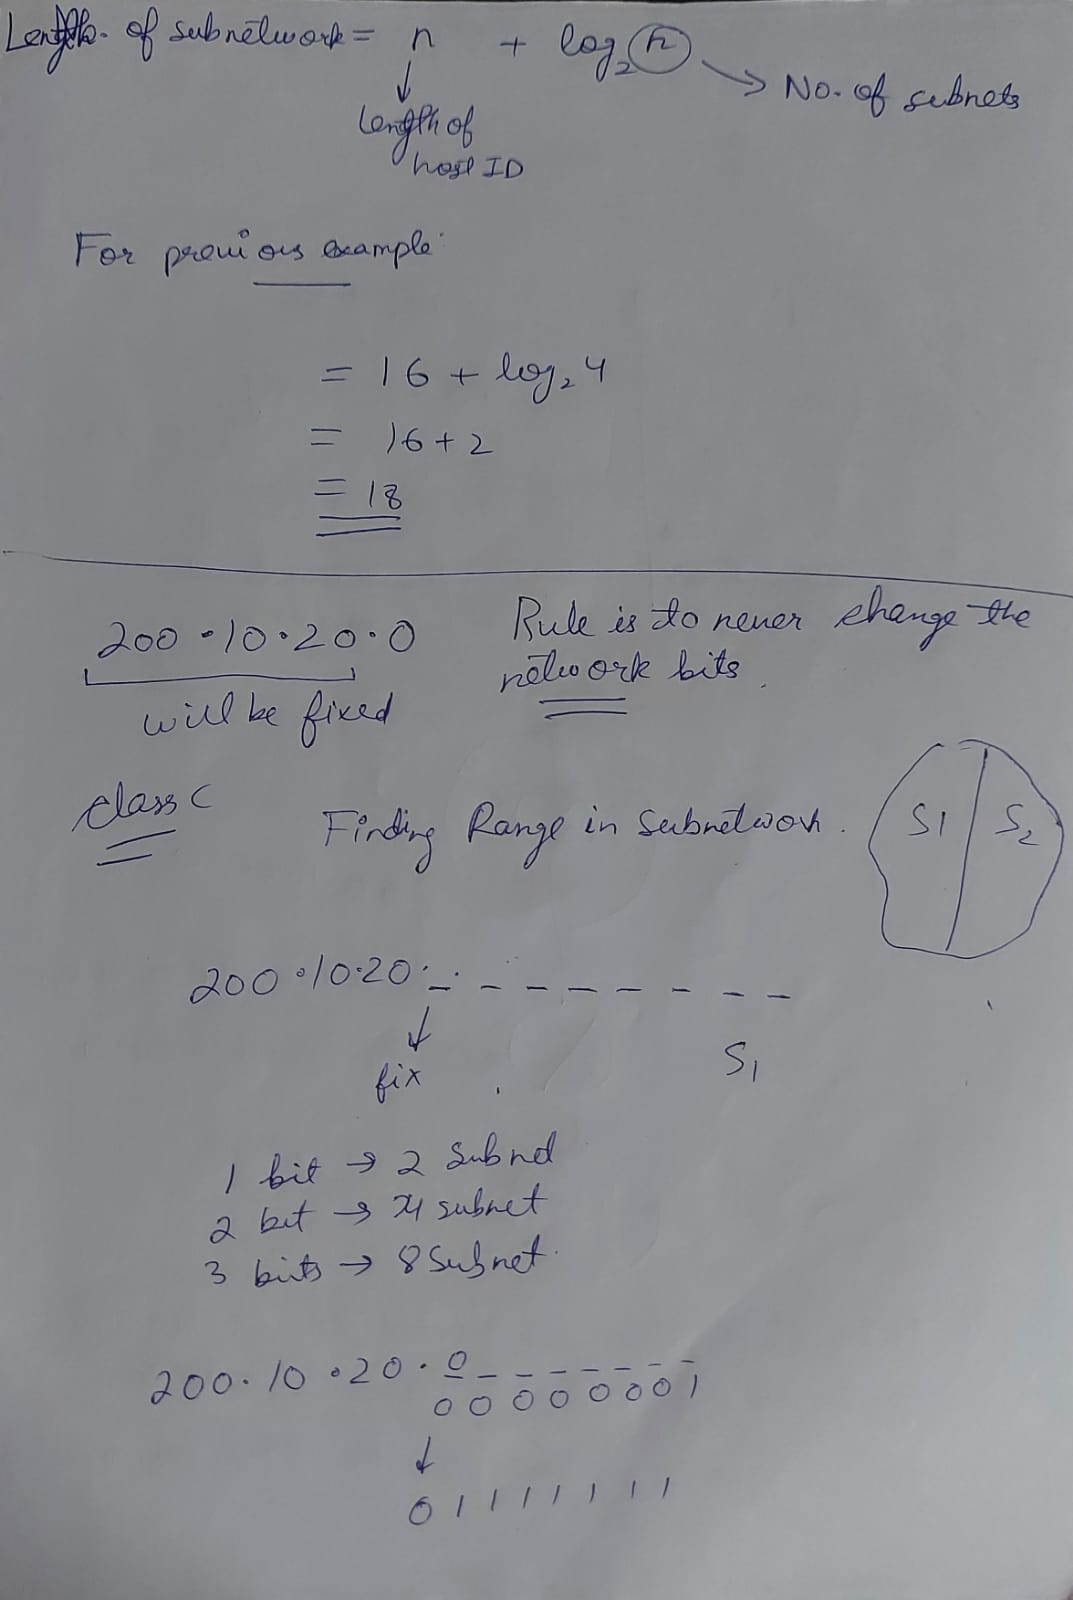 Length. of subnetwork = n + log₂ n → No. of subnets
↓
length of
host ID
For previous example
= 16 + log₂ 4
= 16 + 2
= 18
200.10.20.0
will be fixed
Rule is to never change the
network bits.
Class C
Finding Range in Subnetwork.
S1 S2
200.10.20. _ _ _ _ _ _ _ _
↓
fix
S1
1 bit → 2 Subnet
2 bit → 4 subnet
3 bits → 8 Subnet.
200.10.20. 0 _ _ _ _ _ _ _
0 0 0 0 0 0 0 1
↓
0 1 1 1 1 1 1 1